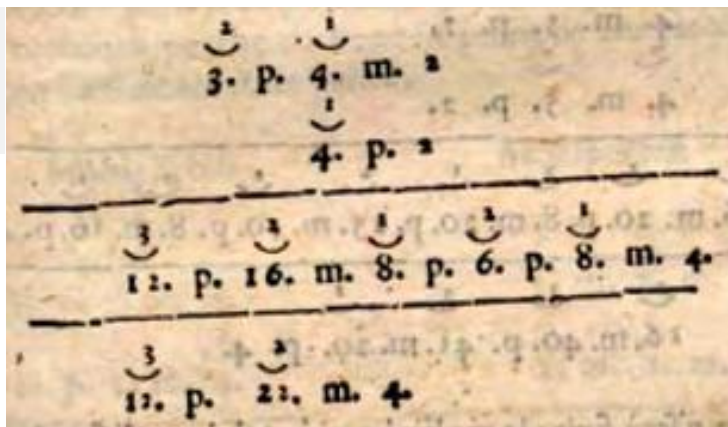 2 1
3. p. 4. m. 2
1
4. p. 2
3 2 1 2 1
12. p. 16. m. 8. p. 6. p. 8. m. 4.
3 2
12. p. 22. m. 4.